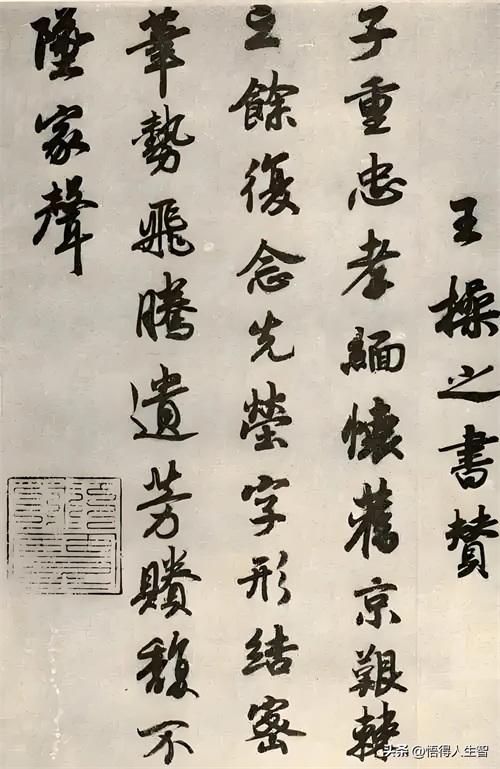 王操之書贊
子重忠孝緬懷舊京艱難
之餘復念先塋字形結密
筆勢飛騰遺芳賸馥不
墜家聲
头条 @悟得人生智